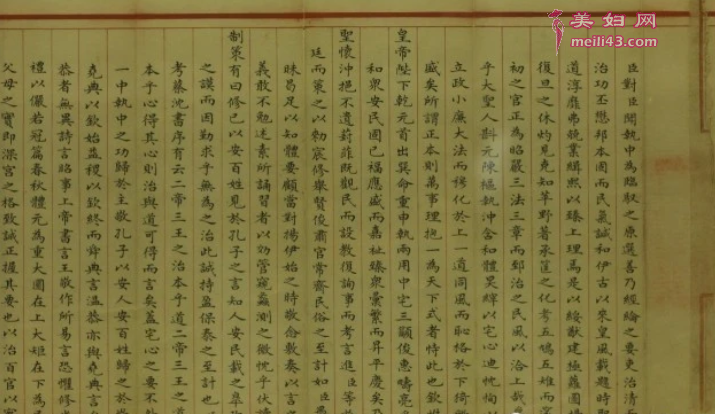 美妇网
meili43.com
臣對臣聞執中為臨馭之原選善乃經綸之要吏治清
治功丕懋邦本固而民氣誠和伊古以來皇風載題時
道淳龐弗兢業緝熙以臻上理焉是以綏猷建極蘿圖
復旦之休灼見克知莘野普承筐之化考五鳩五雉而
初之官正為昭嚴三法三章而郅治之民風以洽上哉
乎大聖人斟元陳樞執沖含和體昊縡以宅心迪忱恂
立政小廉大法而穆化於上一道同風而恥格於下猗
盛矣所謂正本則萬事理抱一為天下式者恃此也欽惟
皇帝陛下乾元首出巽命重申執兩用中宅三顯俊惠疇亮
和眾安民固已福應盛而嘉祉臻眾彙繁而昇平慶矣乃
聖懷沖挹不遺葑菲既觀民而設教復詢事而考言進臣等
廷而策之以勅宸修舉賢俊肅官常齊民俗之至計如臣
昧曷足以知體要顧當對揚伊始之時敬念敷奏以言
義敢不勉述素所誦習者以効管窺蠡測之微忱乎伏讀
制策有曰修己以安百姓見於孔子之言知人安民載之皋
之謨而因勤求乎無為之治此誠持盈保泰之至計也
考蔡沈書序有云二帝三王之治本乎道二帝三王之道
本乎心得其心則治與道可得而言矣蓋宅心之要不外
一中執中之功歸於主敬孔子以安人安百姓歸之於
堯典以欽始益稷以欽終而舜典言溫恭亦與堯典言
恭者無異詩言昭事上帝書言王敬作所易言恐懼修
禮以儼若冠篇春秋體元為重大圜在上大矩在下為
父母之實即深宮之格致誠正握其要也以治百官以